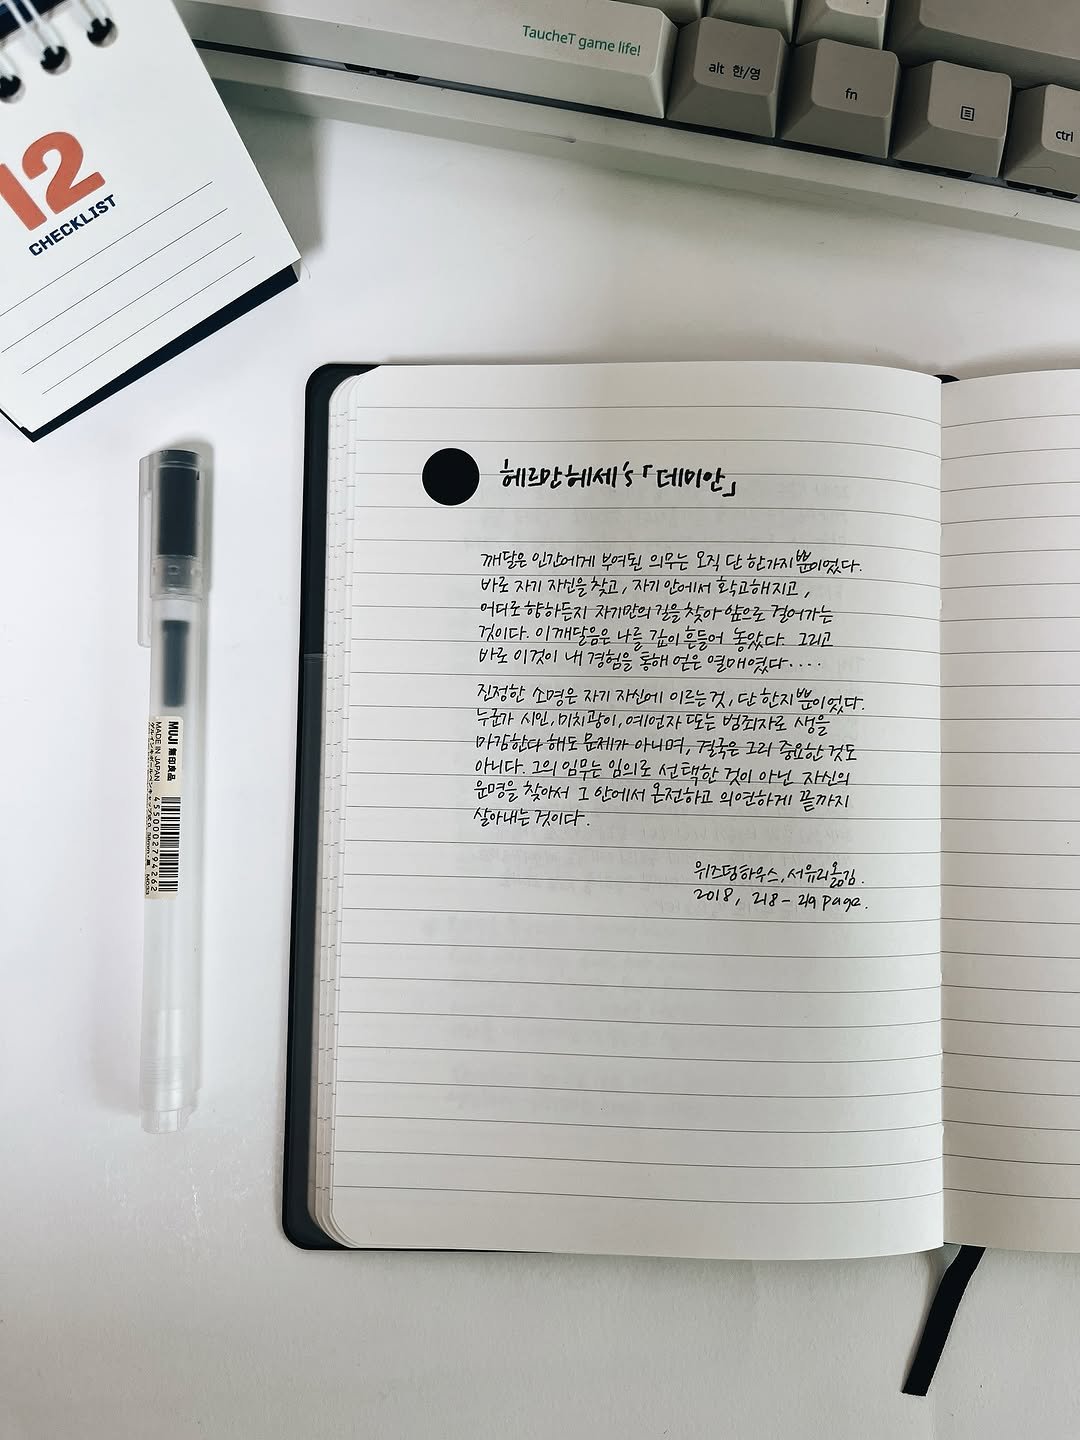 TaucheT game life!
alt 한/영
fn
ctrl
12
CHECKLIST
헤르만헤세's 「데미안」
깨달은 인간에게 부여된 의무는 오직 단 한가지뿐이었다.
바로 자기 자신을 찾고, 자기 안에서 확고해지고,
어디로 향하든지 자기만의 길을 찾아 앞으로 걸어가는
것이다. 이 깨달음은 나를 깊이 흔들어 놓았다. 그리고
바로 이것이 내 경험을 통해 얻은 열매였다....
진정한 소명은 자기 자신에 이르는 것, 단 한지뿐이었다.
누군가 시인, 미치광이, 예언자 또는 범죄자로 생을
마감한다 해도 문제가 아니며, 결국은 그리 중요한 것도
아니다. 그의 임무는 임의로 선택한 것이 아닌 자신의
운명을 찾아서 그 안에서 온전하고 의연하게 끝까지
살아내는 것이다.
위즈덤하우스, 서유리옮김.
2018, 218-219 page.
MUJI 無印良品
MADE IN JAPAN
4550002794262